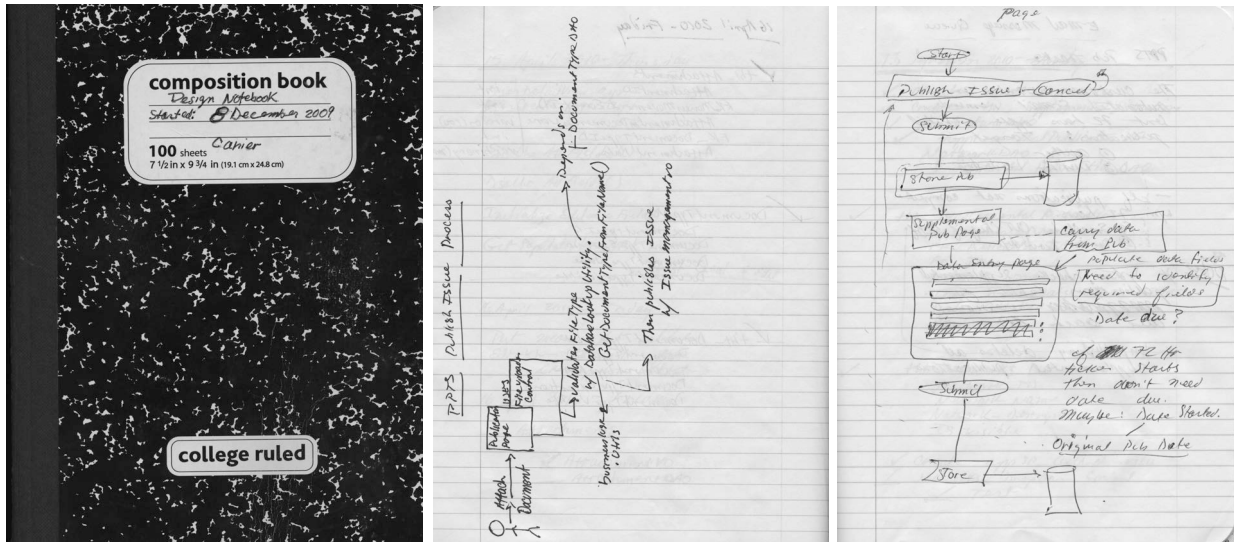 composition book
Design Notebook
Started: 8 December 2009
Cahier
100 sheets
7 1/2 in x 9 3/4 in (19.1 cm x 24.8 cm)
college ruled
PPTS Publish Issue Process
Attach
Document
Publication
Page
uses
File Upload
Control
Validates File Type
w/ DatabaseLookupUtility.
GetDocumentTypeFromFileName()
Depends on:
DocumentTypesHO
businesslogic
.utils
Then publishes Issue
w/ IssueManagementHO
Page
Start
Publish Issue
Cancel
Submit
Store Pub
Supplemental
Pub Page
Carry data
from Pub
Data Entry page
populate data fields
Need to identify
required fields
Date due?
if 72 Hr
ticker starts
then doesn't need
date due.
Maybe: Date Started.
Submit
Original Pub Date
Store